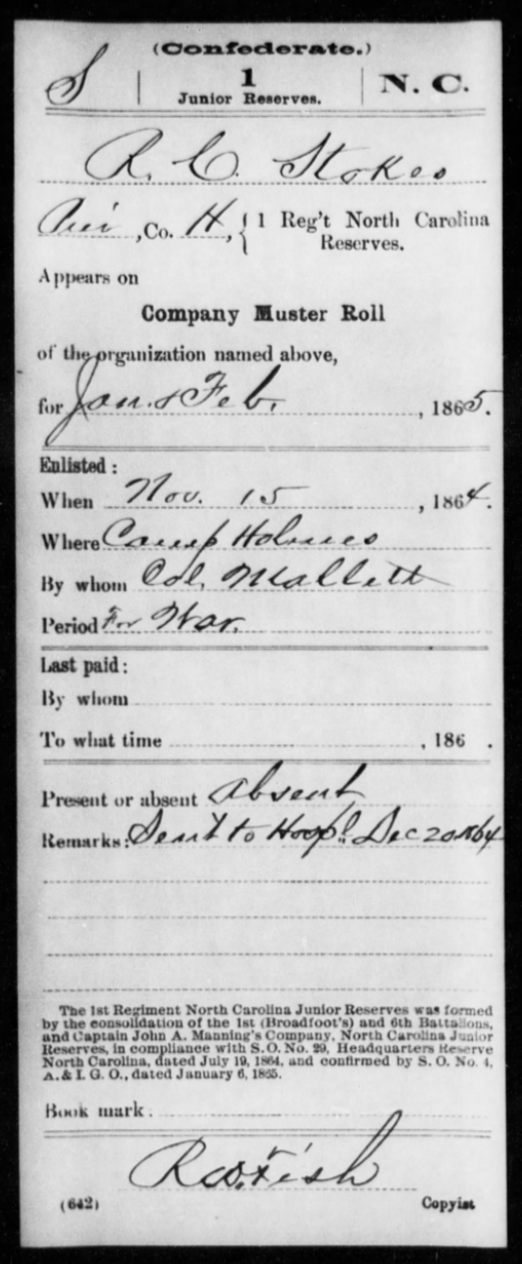 (Confederate.)
S | 1 | N. C.
Junior Reserves.
R. C. Stokes
Pri , Co. H, { 1 Reg't North Carolina
Reserves.
Appears on
Company Muster Roll
of the organization named above,
for Jan. & Feb. , 1865.
Enlisted :
When Nov. 15 , 1864.
Where Camp Holmes
By whom Col. Mallett
Period For War.
Last paid :
By whom
To what time , 186 .
Present or absent Absent
Remarks: Sent to Hospl. Dec 20 1864
The 1st Regiment North Carolina Junior Reserves was formed
by the consolidation of the 1st (Broadfoot's) and 6th Battalions,
and Captain John A. Manning's Company, North Carolina Junior
Reserves, in compliance with S. O. No. 29, Headquarters Reserve
North Carolina, dated July 19, 1864, and confirmed by S. O. No. 4,
A. & I. G. O., dated January 6, 1865.
Book mark :
Fish
(642) Copyist